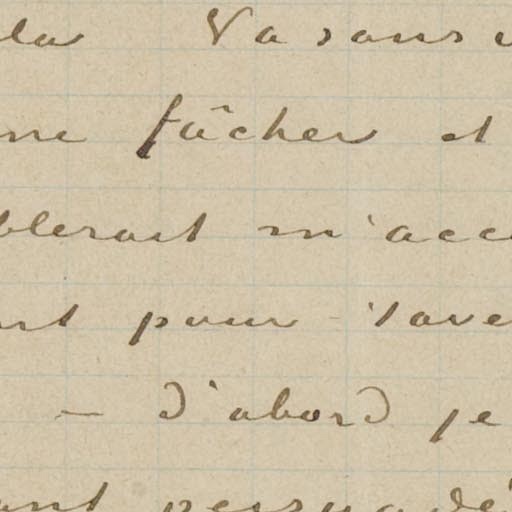 la Va sans
me fâcher et
blerait m'acc
nt pour save
– d'abord je
ant persuadé